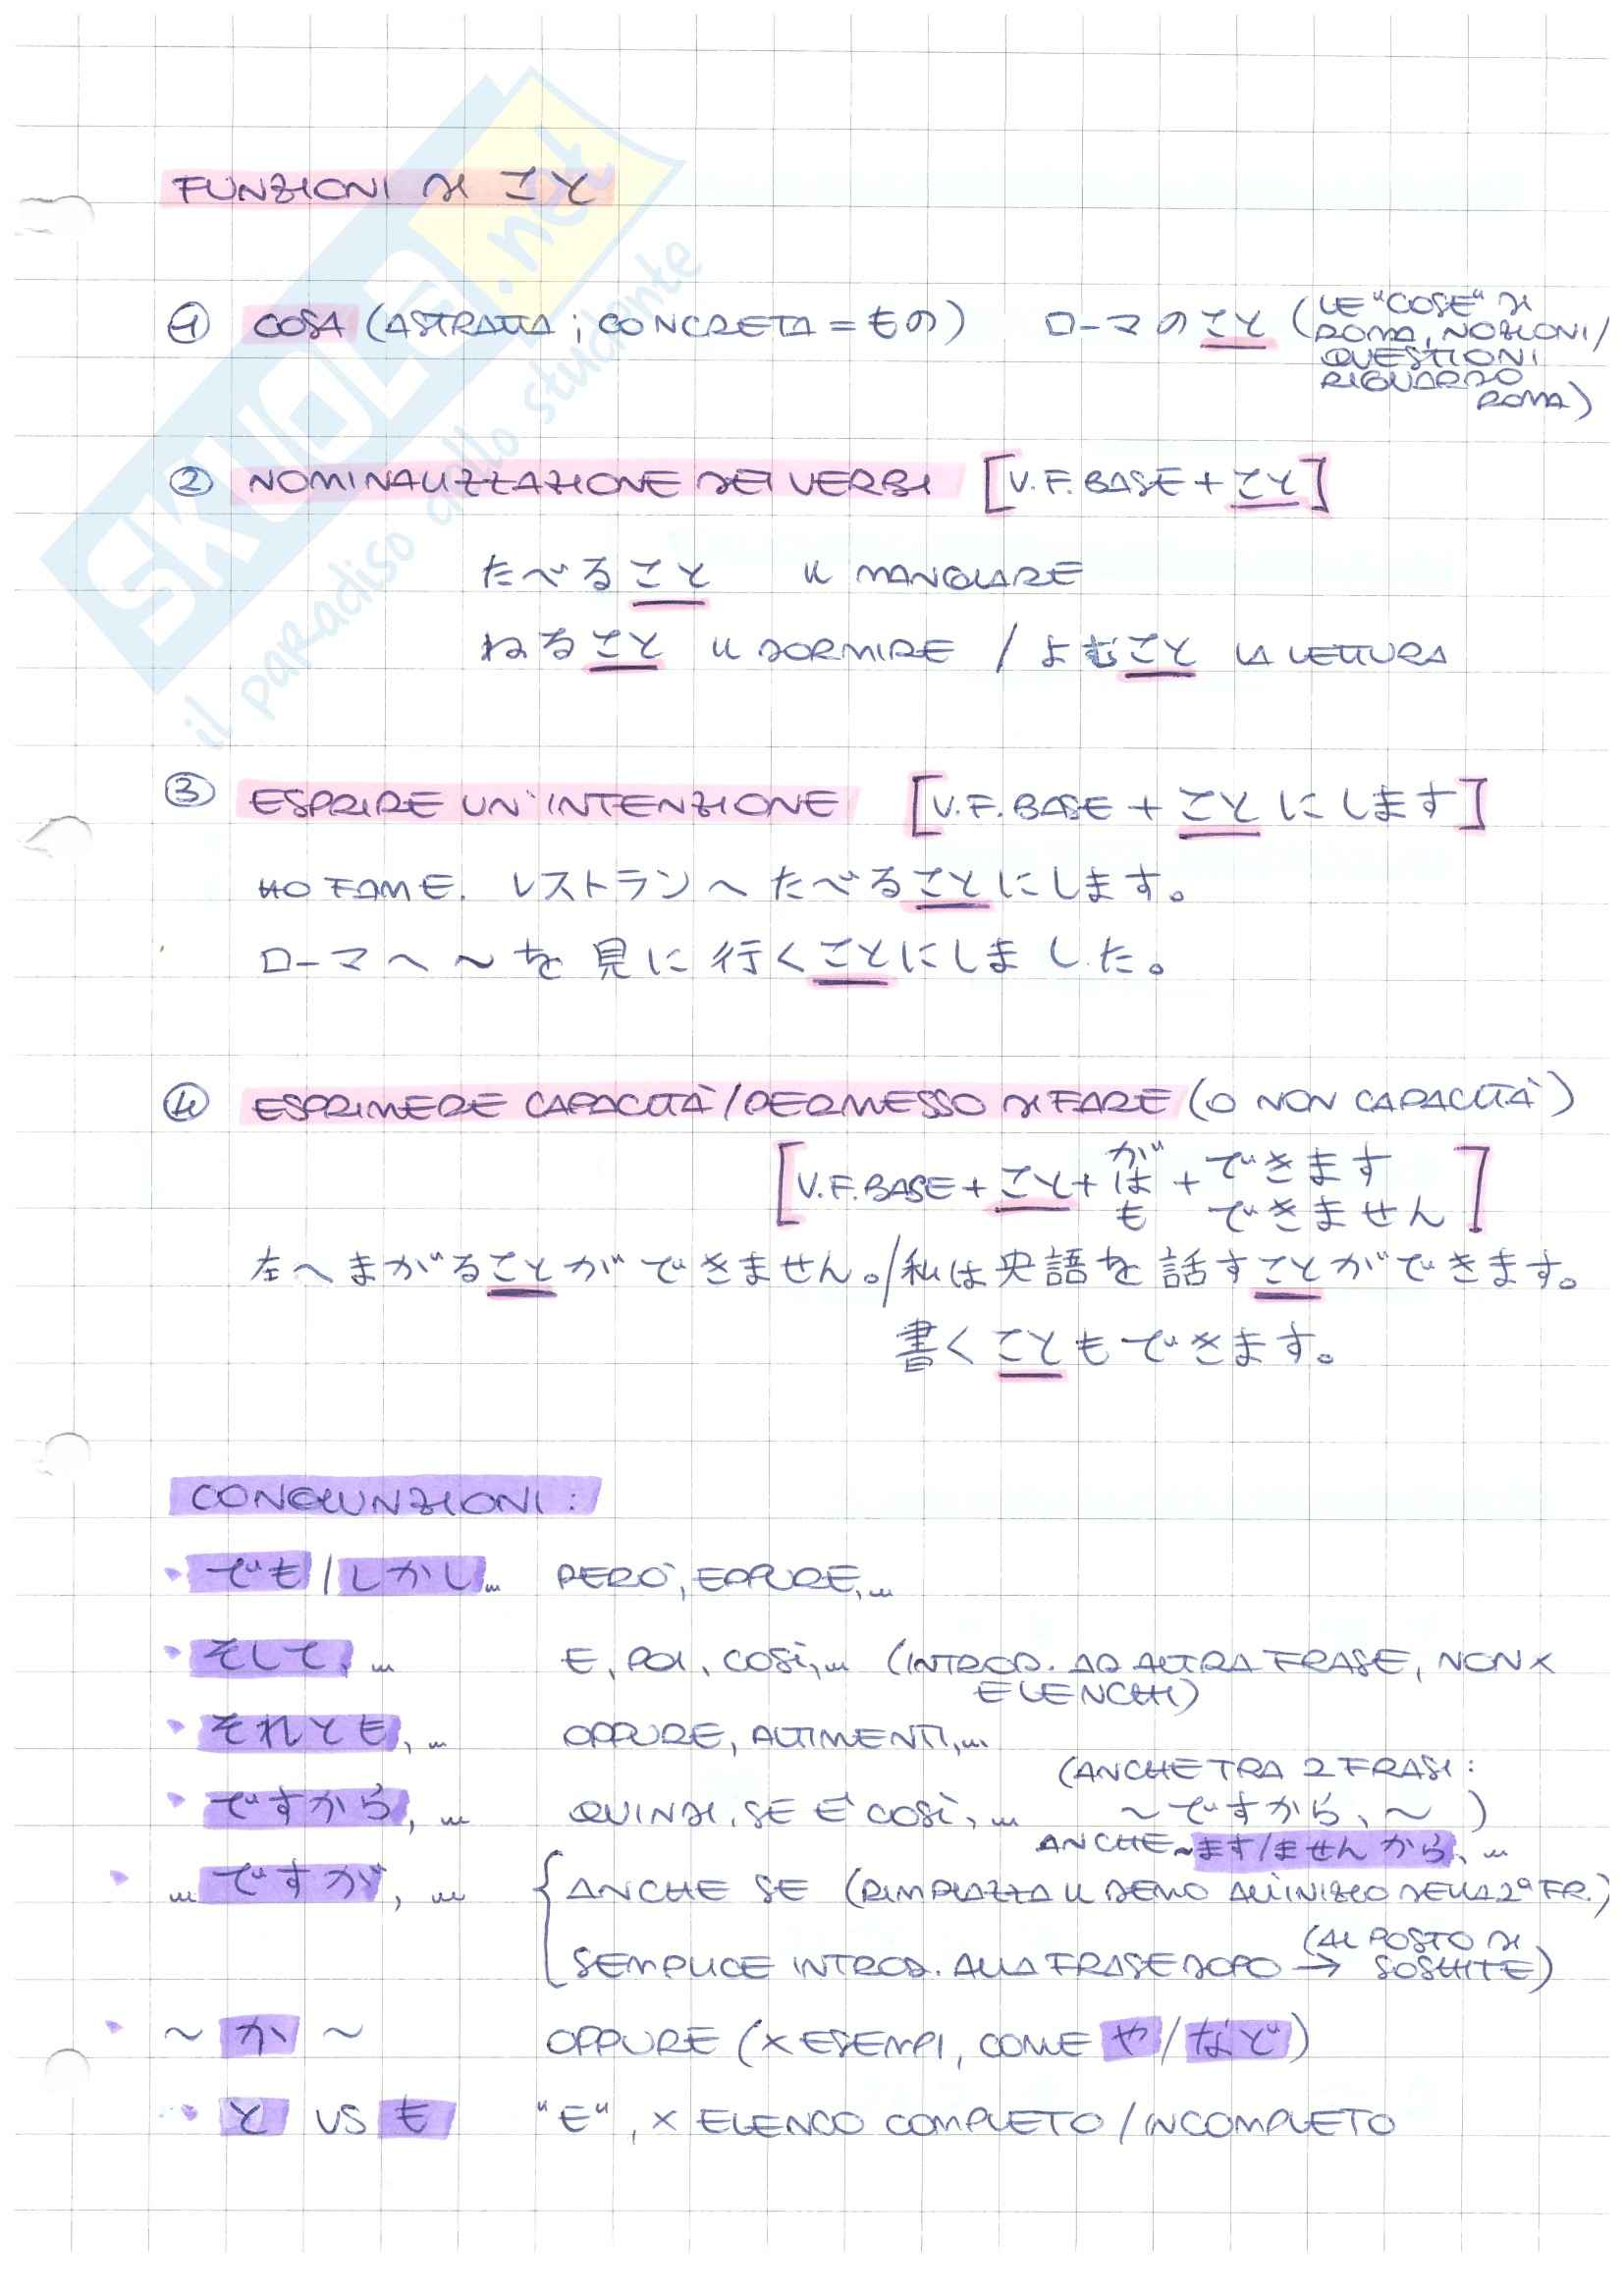 FUNZIONI DI こと
① COSA (ASTRATTA ; CONCRETA = もの) ローマのこと (LE "COSE" DI
ROMA, NOZIONI/
QUESTIONI
RIGUARDO
ROMA)
② NOMINALIZZAZIONE DEI VERBI [V.F. BASE + こと]
たべること IL MANGIARE
ねること IL DORMIRE / よむこと LA LETTURA
③ ESPRIRE UN'INTENZIONE [V.F. BASE + ことにします]
HO FAME. レストランへたべることにします。
ローマへ〜を見に行くことにしました。
④ ESPRIMERE CAPACITÀ/PERMESSO DI FARE (O NON CAPACITÀ)
が できます
[V.F. BASE + こと + は + ]
も できません
左へまがることができません。/私は央語を話すことができます。
書くこともできます。
CONGIUNZIONI:
• でも / しかし… PERÒ, EPPURE, …
• そして、… E, POI, COSÌ, … (INTROD. AD ALTRA FRASE, NON X
ELENCHI)
• それとも, … OPPURE, ALTIMENTI, …
(ANCHE TRA 2 FRASI:
• ですから, … QUINDI, SE È COSÌ, … 〜ですから、〜 )
ANCHE 〜ます/ませんから、…
• … ですが, … { ANCHE SE (RIMPIAZZA IL DEMO ALL'INIZIO DELLA 2ª FR.)
(AL POSTO DI
SEMPLICE INTROD. ALLA FRASE DOPO → SOSHITE)
• 〜 か 〜 OPPURE (X ESEMPI, COME や / など)
• と VS も "E", X ELENCO COMPLETO / INCOMPLETO
SKUOLA.net
il paradiso dello studente